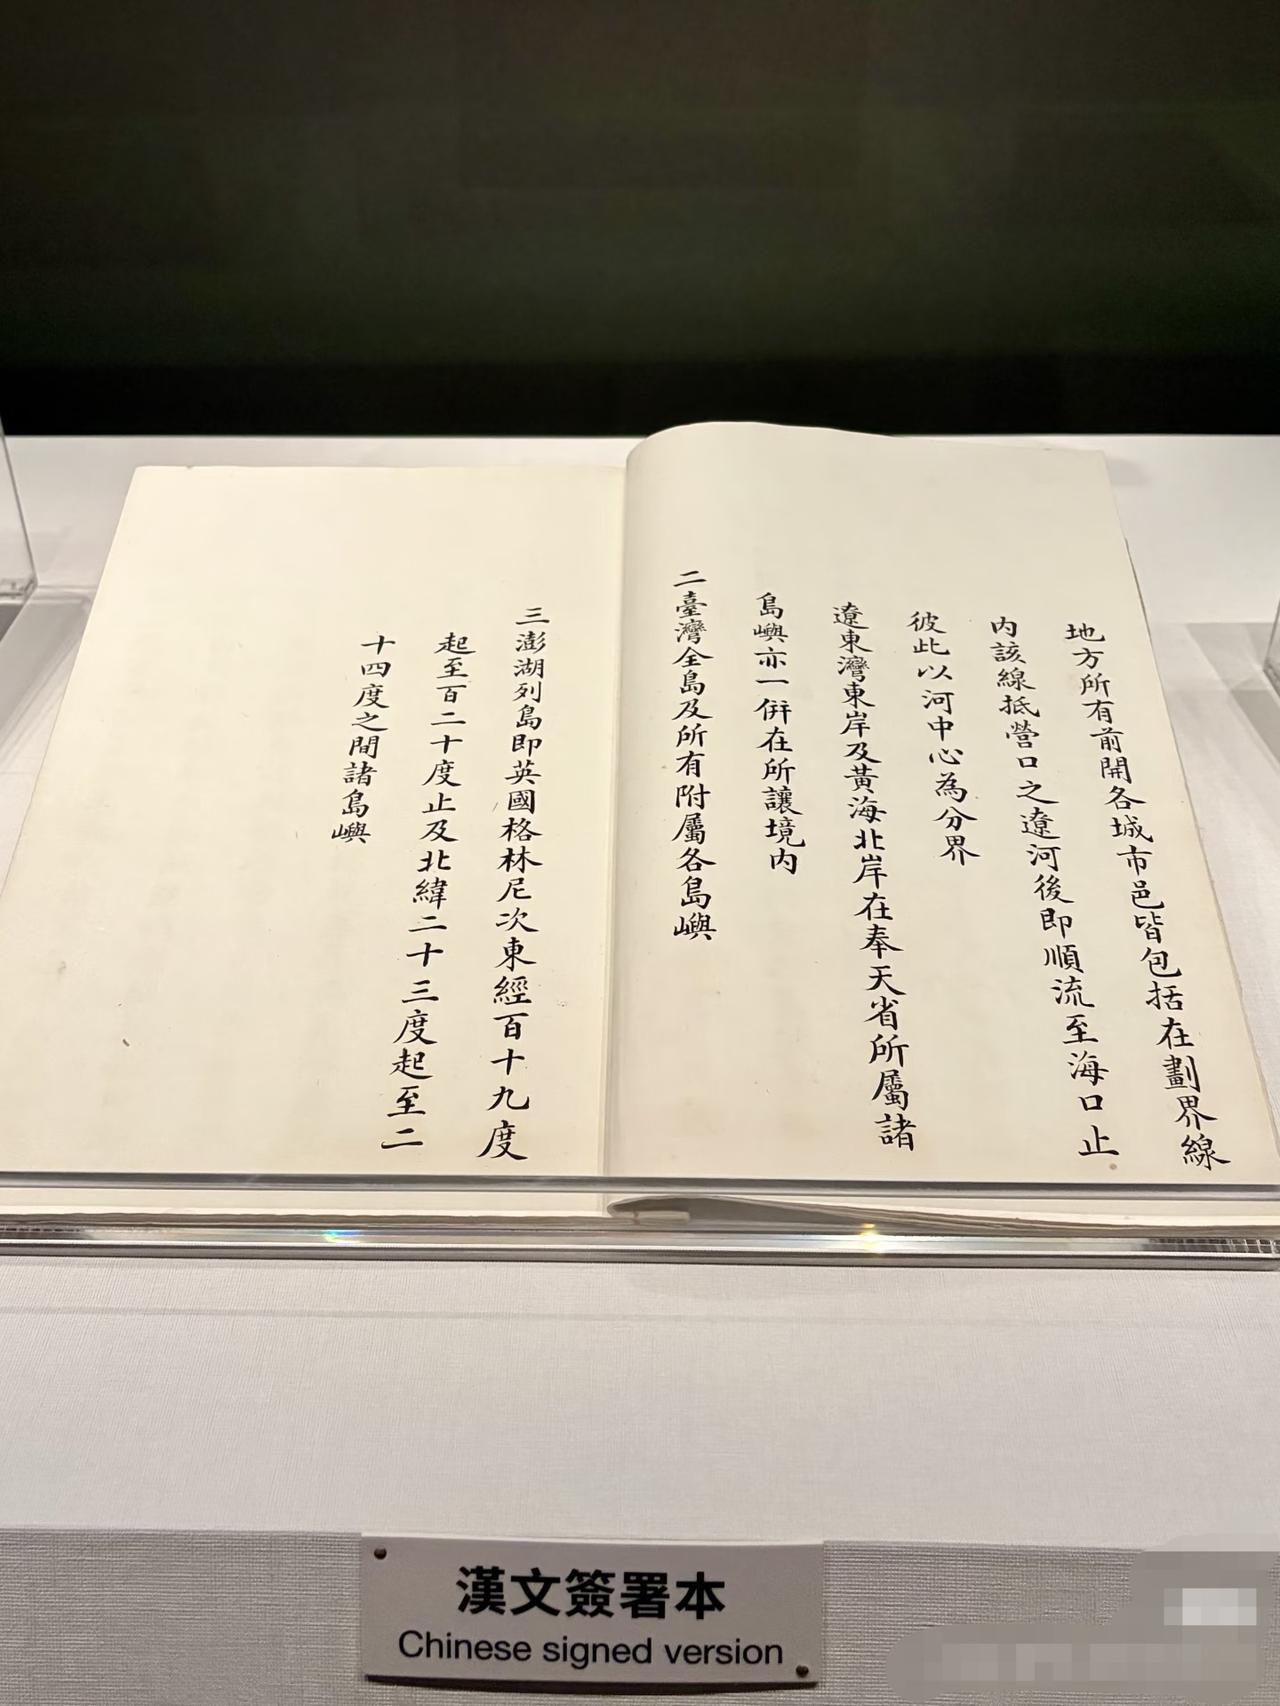 地方所有前開各城市邑皆包括在劃界線
内該線抵營口之遼河後即順流至海口止
彼此以河中心為分界
遼東灣東岸及黃海北岸在奉天省所屬諸
島嶼亦一併在所讓境内
二臺灣全島及所有附屬各島嶼
三澎湖列島即英國格林尼次東經百十九度
起至百二十度止及北緯二十三度起至二
十四度之間諸島嶼
漢文簽署本
Chinese signed version